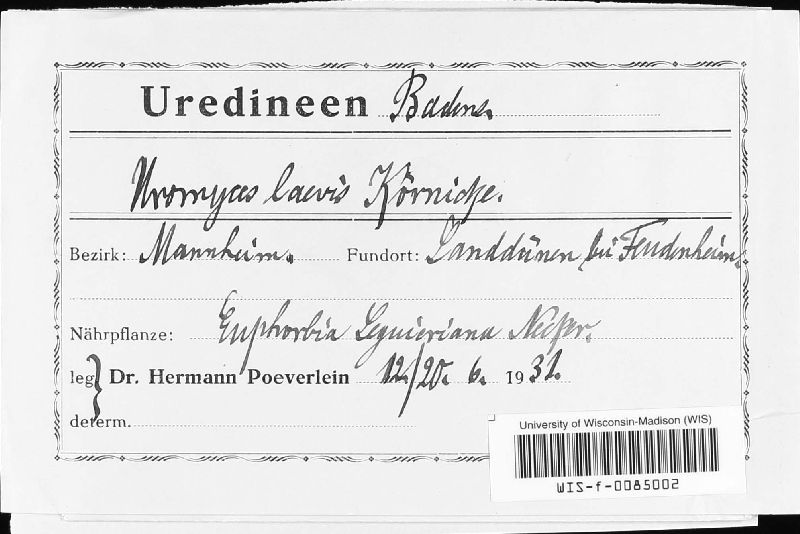 Uredineen Badens.
Uromyces laevis Körnicke.
Bezirk: Mannheim. Fundort: Sanddünen bei Feudenheim.
Nährpflanze: Euphorbia Seguieriana Necker.
leg. Dr. Hermann Poeverlein 12./20. 6. 1931.
determ.
University of Wisconsin-Madison (WIS)
WIS-f-0085002